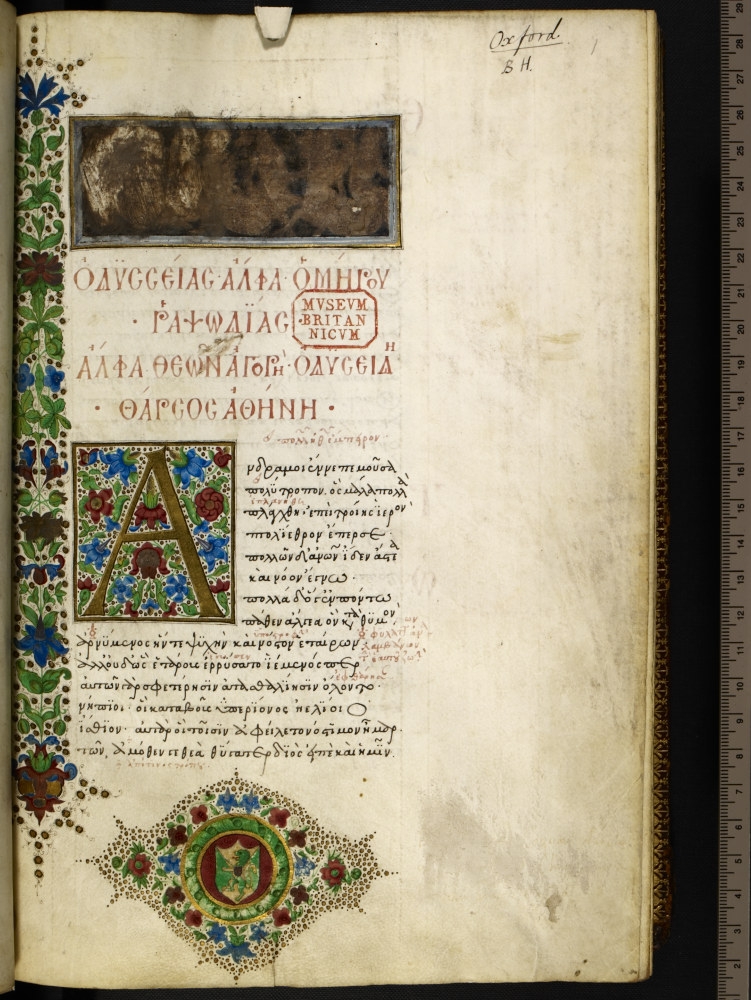 Oxford.
S H.
ὈΔΥΣΣΕΊΑΣ· ἌΛΦΑ· ὉΜΉΡΟΥ
· ῬΑΨΩΔΪ́ΑΣ·
MVSEVM
BRITAN
NICVM
ἌΛΦΑ ΘΕΩ͂Ν ἈΓΟΡΉ· ὈΔΥΣΕΙΔΗ
· ΘΆΡΣΟΣ ἈΘΉΝΗ ·
Α
νδρα μοι ἔννεπε μοῦσα
πολύτροπον, ὃς μάλα πολλὰ
πλάγχθη· ἐπεὶ τροίης ἱερὸν
πτολίεθρον ἔπερσε·
πολλῶν δ' ἀνθρώπων ἴδεν ἄστεα
καὶ νόον ἔγνω·
πολλὰ δ' ὅγ' ἐν πόντῳ
πάθεν ἄλγεα ὃν κατὰ θυμόν
ἀρνύμενος ἥν τε ψυχὴν καὶ νόστον ἑταίρων
ἀλλ' οὐδ' ὣς ἑτάρους ἐρρύσατο ἱέμενός περ
αὐτῶν γὰρ σφετέρῃσιν ἀτασθαλίῃσιν ὄλοντο·
νήπιοι· οἳ κατὰ βοῦς ὑπερίονος ἠελίοιο
ἤσθιον· αὐτὰρ ὁ τοῖσιν ἀφείλετο νόστιμον ἦμαρ·
τῶν, ἁμόθεν γε θεὰ θύγατερ διὸς εἰπὲ καὶ ἡμῖν.